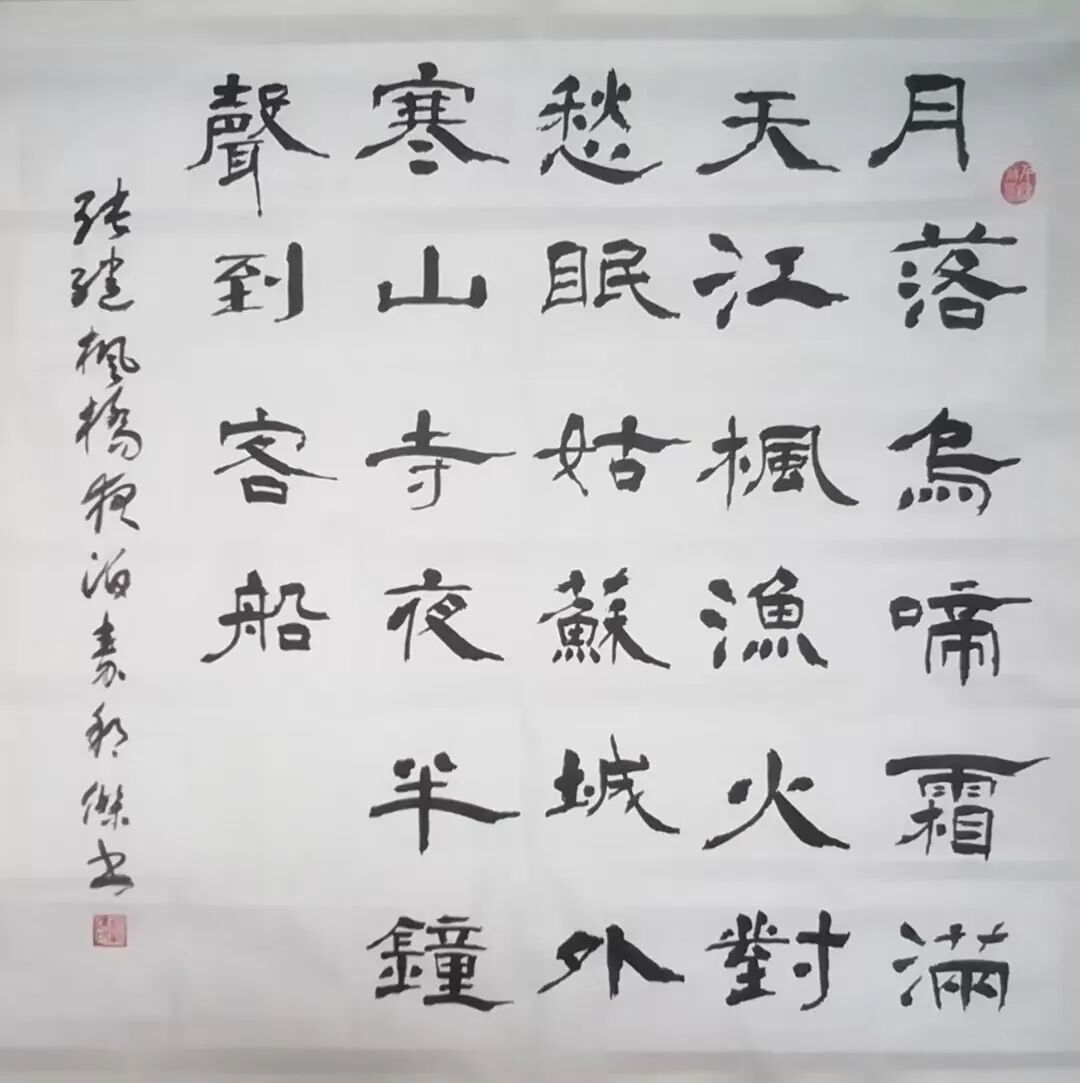 月落烏啼霜滿
天江楓漁火對
愁眠姑蘇城外
寒山寺夜半鐘
聲到客船
張繼楓橋夜泊 傑书